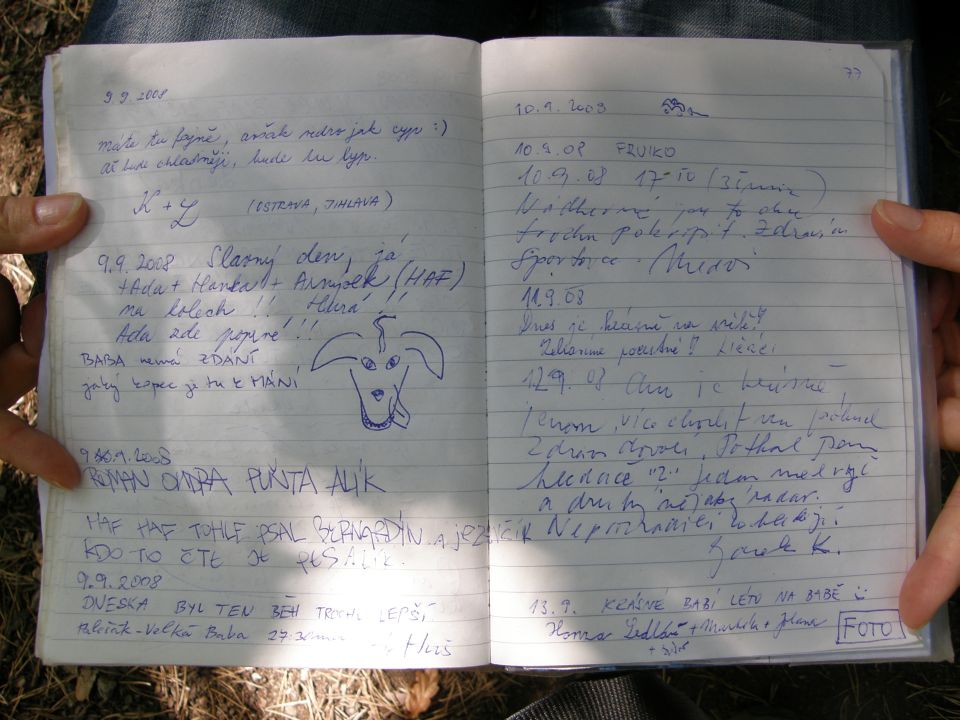 9.9.2008
máte tu fajně, avšak vedro jak cyp :)
až bude chladněji, bude tu lyp.
K + L (OSTRAVA, JIHLAVA)
9.9.2008 Slavný den, já,
+Ada + Hanka + Arnýsek (HAF)
na kolech !! Hurá !!
Ada zde poprvé !!!
BABA nemá ZDÁNÍ
jaký kopec je tu k MÁNÍ
9.9.2008
ROMAN ONDRA PUŇŤA ALÍK
HAF HAF TOHLE PSAL BERNARDÝN a jezevčík
KDO TO ČTE JE PES ALÍK.
9.9.2008
DNESKA BYL TEN BĚH TROCHU LEPŠÍ
Palačák - Velká Baba 27:30min
77
10.9.2008
10.9.08 FRUIKO
10.9.08 17-10
Nádherné, jen to chce
trochu pokropit. Zdravím
Sportovce.
11.9.08
Dnes je krásně na světě!
12.9.08 Ano je krásně,
jenom více chodit na
Zdraví dovolí, Potkal jsem
hledače "2" jeden měl
a druhý nějaký radar.
Neprozradili co hledají
Jarek K.
13.9. KRÁSNÉ BABÍ LÉTO NA BABĚ
Honza + Markéta +
FOTO